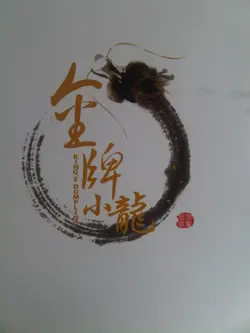 金牌
小龍
KING'S DUMPLING